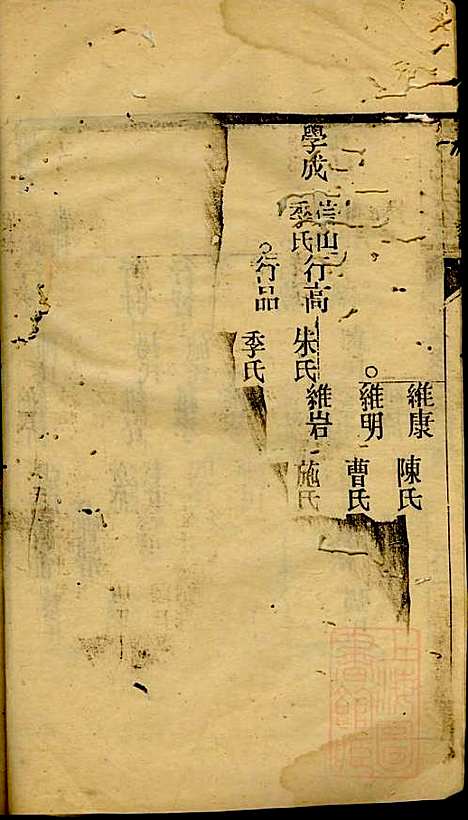 維康 陳氏
維明 曹氏
學成 山 行高 維岩 施氏
季氏 朱氏
行品 季氏